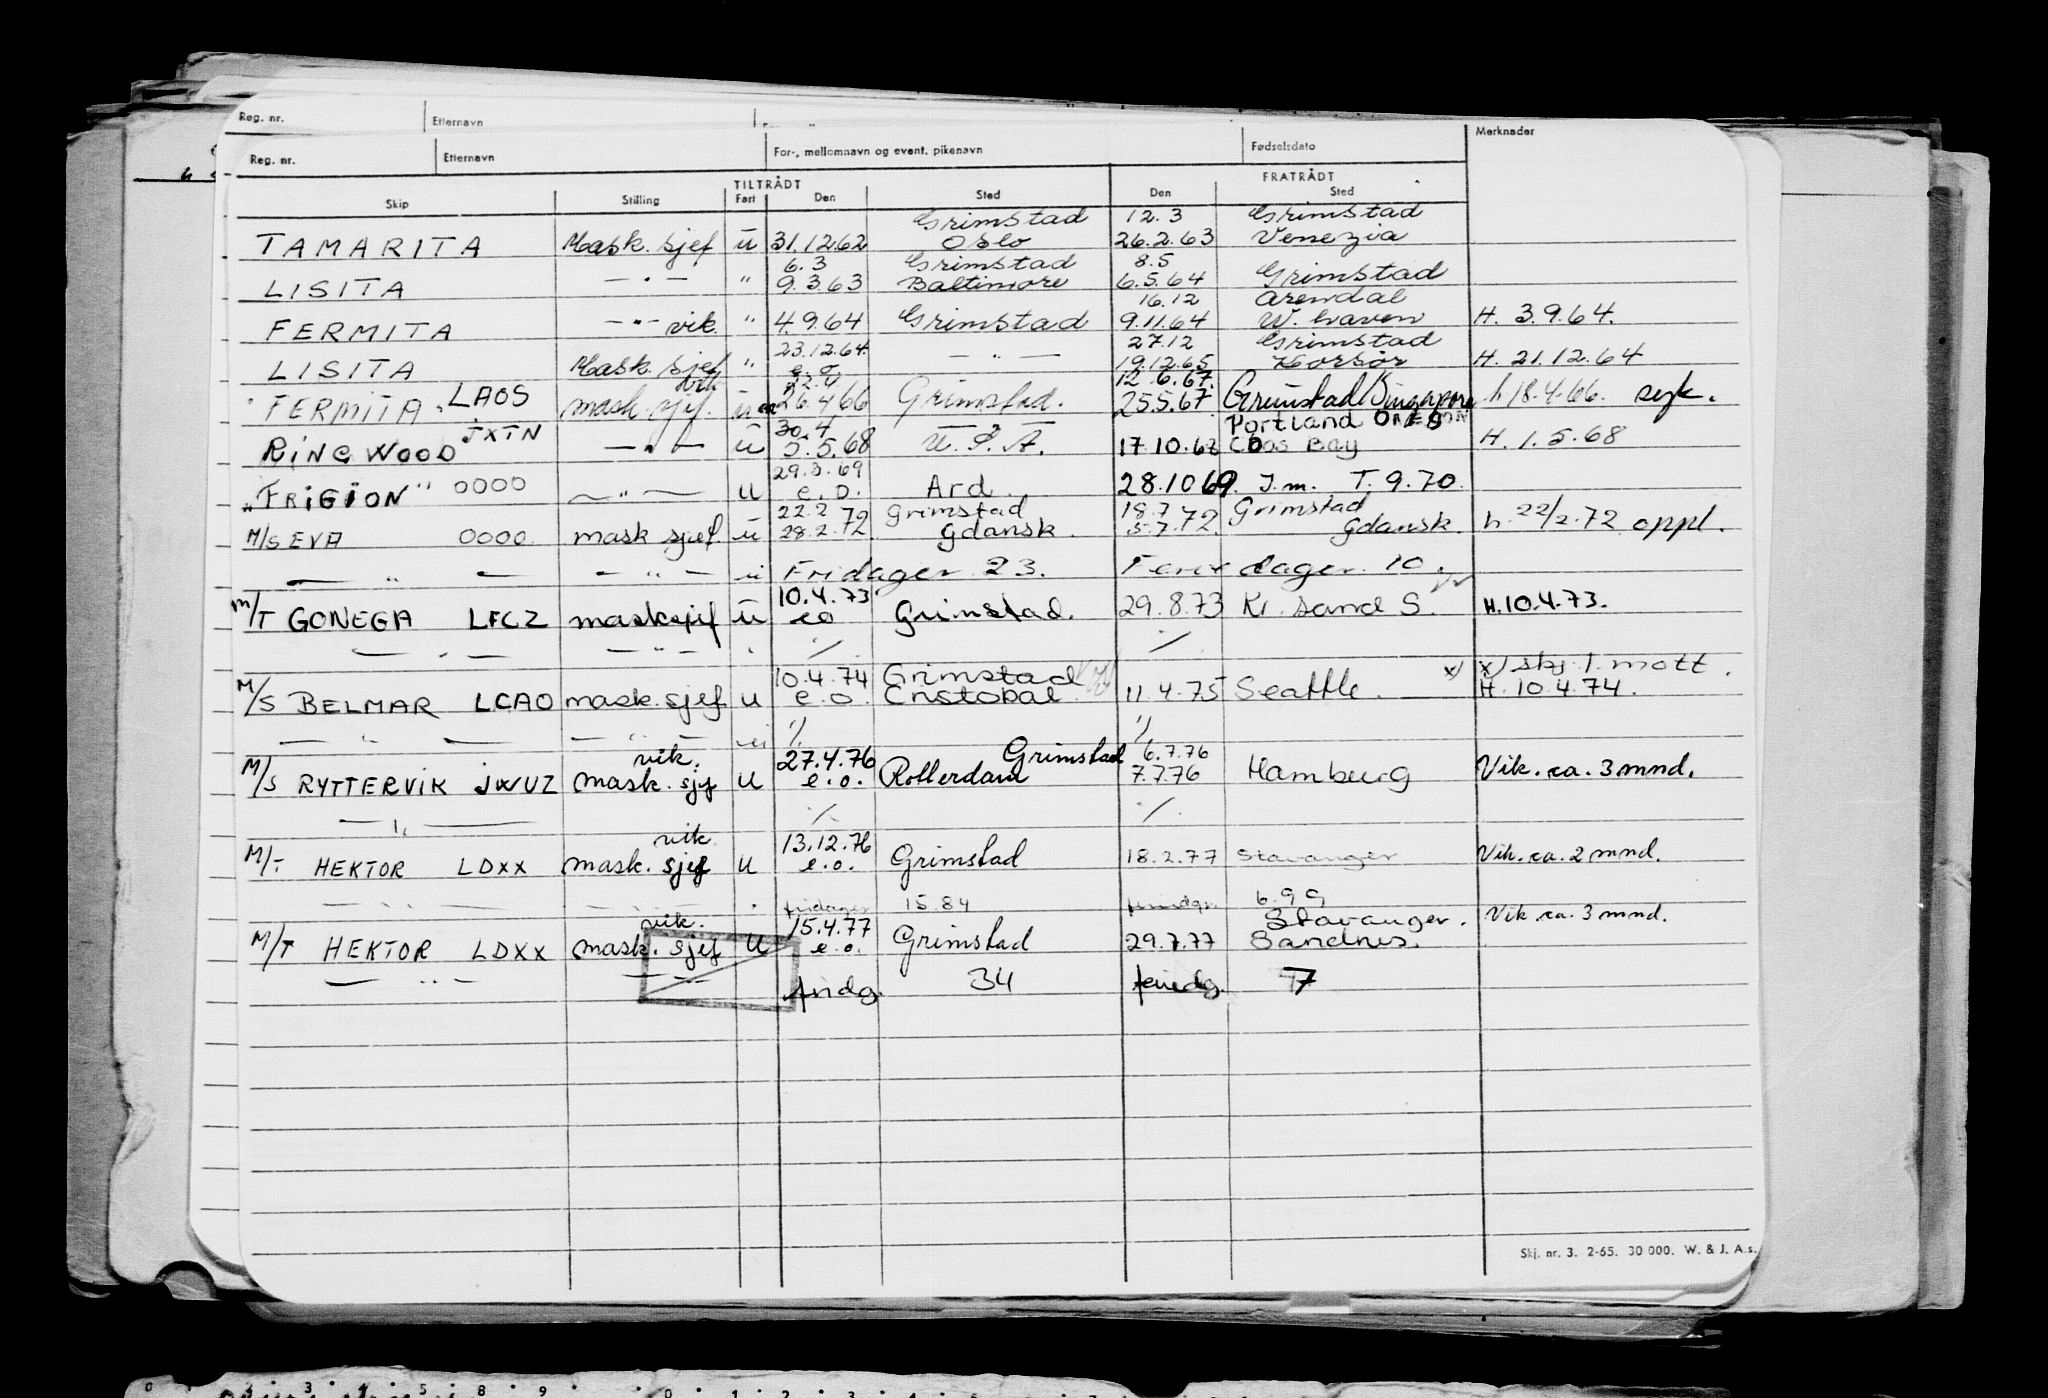 Reg. nr. Etternavn
Reg. nr. Etternavn For-, mellomnavn og event. pikenavn Fødselsdato Merknader
TILTRÅDT FRATRÅDT
Skip Stilling Fart Den Sted Den Sted
Grimstad 12.3 Grimstad
TAMARITA Mask. sjef u 31.12.62 Oslo 26.2.63 Venezia
6.3 Grimstad 8.5
LISITA — " — " 9.3.63 Baltimore 6.5.64 Grimstad
16.12 Arendal
FERMITA — " — vik. " 4.9.64 Grimstad 9.11.64 W. H. 3.9.64.
23.12.64. 27.12 Grimstad
LISITA Mask. sjef " e.o — " — 19.12.65 Korsør H. 21.12.64
vik 22.4 12.6.67.
"FERMITA" LAOS mask. sjef. u 26.4.66 Grimstad. 25.5.67 Grimstad/Singapore h 18.4.66. syk.
30.4 Portland OREGON
RINGWOOD JXTN — " — u 5.5.68 U.S.A. 17.10.68 COOS Bay H. 1.5.68
29.3.69
"FRIGION" 0000 — " — u e.o. Ard. 28.10 69. I.m. T. 9.70.
22.2 Grimstad 18.7 Grimstad
M/S EVA 0000. mask sjef. u 28.2.72. Gdansk. 5.7.72. Gdansk. h. 22/2.72 oppl.
— " — — " — u Fridager 23. Ferie dager. 10.
10.4.73
M/T GONEGA LFCZ masksjef u eo Grimstad. 29.8.73 Kr. sand S. H. 10.4.73.
— " — — " — " ./. ./.
10.4.74 Grimstad x) x) skj. 1. mott.
M/S BELMAR LCAO mask. sjef u e.o. Cristobal. 11.4.75 Seattle. H. 10.4.74.
— " — — " — ./. ./.
vik. 27.4.76 Grimstad 6.7.76
M/S RYTTERVIK JWUZ mask. sjef u e.o. Rotterdam 7.7.76 Hamburg Vik. ca. 3 mnd.
— " — ./. ./.
vik. 13.12.76
M/T HEKTOR LDXX mask. sjef u e.o. Grimstad 18.2.77 Stavanger Vik. ca. 2 mnd.
— " — — " — " fridager 15.84 feriedgr. 6.99
vik. 15.4.77 Stavanger. Vik ca. 3 mnd.
M/T HEKTOR LDXX mask. sjef u e.o. Grimstad 29.7.77 Sandnes.
— " — — " — fridg. 34 feriedg. 7
Skj. nr. 3. 2-65. 30 000. W. & J. A.s.